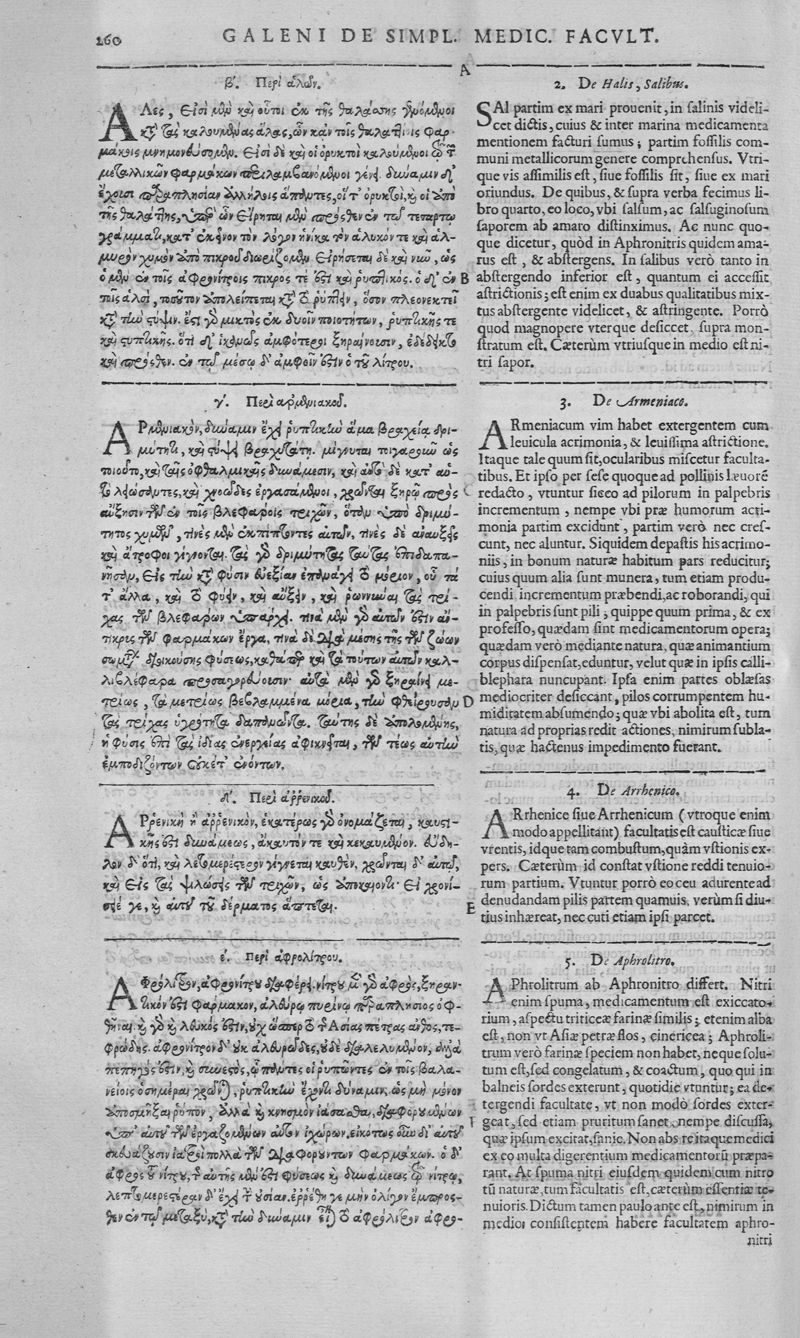 260 GALENI DE SIMPL. MEDIC. FACVLT.
β'. Περὶ ἁλῶν.
Ἅλες, εἰσὶ μὲν καὶ οὗτοι ἐκ τῆς θαλάσσης γινόμενοι
κατὰ τὰς καλουμένας ἁλὰς, ὧν κἀν τοῖς θαλαττίοις φαρ-
μάκοις μνημονεύσομεν. εἰσὶ δὲ καὶ οἱ ὀρυκτοὶ καλούμενοι
μεταλλικῶν φαρμάκων
ἔχουσι παραπλησίαν ἀλλήλοις ἅπαντες, οἵ τ' ὀρυκτοὶ, καὶ οἱ ἀπὸ
τῆς θαλάττης, ὑπὲρ ὧν εἴρηται μὲν πρόσθεν ἐν τῷ τετάρτῳ
γράμματι, κατ' ἐκεῖνον τὸν λόγον ἡνίκα τὸν ἁλυκόν τε καὶ ἁλ-
μυρὸν χυμὸν ἀπὸ πικροῦ διωρίζομεν εἰρήσεται δὲ καὶ νῦν, ὡς
ὁ μὲν ἐν τοῖς ἀφρονίτροις πικρός τε ἐστὶ καὶ ῥυπτικός. ὁ δ' ἐν
τοῖς ἁλσὶ, τοσοῦτον ἀπολείπεται κατὰ τὸ ῥύπτειν, ὅσον πλεονεκτεῖ
κατὰ τὴν στύψιν. ἔστι γὰρ μικτὸς ἐκ δυοῖν ποιοτήτων, ῥυπτικῆς τε
καὶ στυπτικῆς. ὅτι δ' ἱκανῶς ἀμφότεροι ξηραίνουσιν, ἐδέδεικτο
καὶ πρόσθεν. ἐν τῷ μέσῳ δ' ἀμφοῖν ἐστιν ὁ τοῦ λίτρου.
γ'. Περὶ ἀρμενιακοῦ.
Ἀρμενιακὸν, δύναμιν ἔχει ῥυπτικὴν ἅμα βραχείᾳ δρι-
μύτητι, καὶ στύψει βραχυτάτῃ. μίγνυται τοιγαροῦν ὡς
τοιοῦτο, καὶ ταῖς ὀφθαλμικαῖς δυνάμεσιν, καὶ αὐτὸ δὲ κατ' αὐ-
τὸ λειώσαντες, καὶ χνοῶδες ἐργασάμενοι, χρῶνται ξηρῷ πρὸς
αὔξησιν τῶν ἐν τοῖς βλεφάροις τριχῶν, ὅταν ὑπὸ δριμύ-
τητος χυμῶν, τινὲς μὲν ἐκπίπτοντες αὐτῶν, τινὲς δὲ ἀναυξεῖς
καὶ ἄτροφοι γίγνονται. τὰς γὰρ δριμύτητας ταύτας
εἰς τὴν κατὰ φύσιν εὐεξίαν ἐπανάγει τὸ μόριον, οὗ τά
τ' ἄλλα, καὶ τὸ φύειν, καὶ αὔξειν, καὶ ῥωννύναι τὰς τρί-
χας τῶν βλεφάρων ὑπάρχει. τινὰ μὲν γὰρ αὐτῶν ἐστιν ἄν-
τικρυς τῶν φαρμάκων ἔργα, τινὰ δὲ διὰ μέσης τῆς τῶν ζώων
σώματα διοικούσης φύσεως, καθάπερ καὶ τὰ τούτων αὐτῶν καλ-
λιβλέφαρα προσαγορεύουσιν. αὐτὰ μὲν γὰρ ξηραίνει με-
τρίως, τὰ μετρίως βεβλαμμένα μόρια, τὴν φθείρουσαν
τὰς τρίχας ὑγρότητα δαπανῶντα. ταύτης δὲ ἀπολομένης,
ἡ φύσις ἐπὶ τὰς ἰδίας ἐνεργείας ἀφικνεῖται, τῶν τέως αὐτὴν
ἐμποδιζόντων οὐκέτ' ἐνόντων.
δ'. Περὶ ἀρρενικοῦ.
Ἀρρενικὴ ἢ ἀρρενικὸν, ἑκατέρως γὰρ ὀνομάζεται, καυστι-
κῆς ἐστι δυνάμεως, ἄκαυστόν τε καὶ κεκαυμένον. εὔδη-
λον δ' ὅτι, καὶ λεπτομερέστερον γίγνεται καυθὲν, χρῶνται δ' αὐτῷ,
καὶ εἰς τὰς ψιλώσεις τῶν τριχῶν, ὡς ἀποκαίοντι· εἰ χρονί-
σειέ γε, καὶ αὐτοῦ τοῦ δέρματος ἅπτεται.
ε'. Περὶ ἀφρολίτρου.
Ἀφρόλιτρον, ἀφρονίτρου διαφέρει. νίτρου μὲν γὰρ ἀφρὸς, ξηραν-
τικόν ἐστι φάρμακον, ἀλεύρῳ πυρίνῳ παραπλήσιος ὀφ-
θῆναι. καὶ γὰρ καὶ λευκός ἐστιν, οὐχ ὥσπερ τὸ τῆς Ἀσίας πέτρας ἄνθος, τε-
φρώδης. ἀφρόνιτρον δ' οὐκ ἀλευρῶδες, οὐδὲ διαλελυμένον, ἀλλὰ
πεπηγός ἐστιν, καὶ συνεστὸς, ᾧ πάντες οἱ ῥυπῶντες ἐν τοῖς βαλα-
νείοις ὁσημέραι χρῶνται, ῥυπτικὴν ἔχοντι δύναμιν, ὡς μὴ μόνον
ἀποσμῆξαι ῥύπον, ἀλλὰ καὶ κνησμὸν ἰάσασθαι, διαφορουμένων
ὑπ' αὐτοῦ τῶν ἐργαζομένων αὐτὸν ἰχώρων. εἰκότως οὖν δι' αὐτοῦ
σκευάζουσιν ἰατροὶ πολλὰ τῶν διαφορούντων φαρμάκων. ὁ δ'
ἀφρὸς τοῦ νίτρου, τῆς αὐτῆς μέν ἐστι φύσεως καὶ δυνάμεως τῷ νίτρῳ,
λεπτομερεστέραν δ' ἔχει τὴν οὐσίαν. ἐρρέθη γε μὴν ὀλίγον ἔμπροσ-
θεν ἐν τῷ μεταξὺ, κατὰ τὴν δύναμιν εἶναι τὸ ἀφρόλιτρον ἀφρο-
A
B
C
D
E
F
2. De Halis, Salibus.
SAl partim ex mari prouenit, in salinis videli-
cet dictis, cuius & inter marina medicamenta
mentionem facturi sumus; partim fossilis com-
muni metallicorum genere comprehensus. Vtri-
que vis assimilis est, siue fossilis sit, siue ex mari
oriundus. De quibus, & supra verba fecimus li-
bro quarto, eo loco, vbi salsum, ac salsuginosum
saporem ab amaro distinximus. Ac nunc quo-
que dicetur, quòd in Aphronitris quidem ama-
rus est, & abstergens. In salibus verò tanto in
abstergendo inferior est, quantum ei accessit
astrictionis; est enim ex duabus qualitatibus mix-
tus abstergente videlicet, & astringente. Porrò
quod magnopere vterque desiccet, supra mon-
stratum est. Cæterùm vtriusque in medio est ni-
tri sapor.
3. De Armeniaco.
ARmeniacum vim habet extergentem cum
leuicula acrimonia, & leuissima astrictione.
Itaque tale quum sit, ocularibus miscetur faculta-
tibus. Et ipso per sese quoque ad pollinis læuorē
redacto, vtuntur sicco ad pilorum in palpebris
incrementum, nempe vbi præ humorum acri-
monia partim excidunt, partim verò nec cres-
cunt, nec aluntur. Siquidem depastis his acrimo-
niis, in bonum naturæ habitum pars reducitur;
cuius quum alia sunt munera, tum etiam produ-
cendi incrementum præbendi, ac roborandi, qui
in palpebris sunt pili; quippe quum prima, & ex
professo, quædam sint medicamentorum opera;
quædam verò mediante natura, quæ animantium
corpus dispensat, eduntur, velut quæ in ipsis calli-
blephara nuncupant. Ipsa enim partes oblæsas
mediocriter desiccant, pilos corrumpentem hu-
miditatem absumendo; quæ vbi abolita est, tum
natura ad proprias redit actiones, nimirum subla-
tis, quæ hactenus impedimento fuerant.
4. De Arrhenico.
ARrhenice siue Arrhenicum (vtroque enim
modo appellitant) facultatis est causticæ siue
vrentis, idque tam combustum, quàm vstionis ex-
pers. Cæterùm id constat vstione reddi tenuio-
rum partium. Vtuntur porrò eo ceu adurente ad
denudandam pilis partem quamuis, verùm si diu-
tius inhæreat, nec cuti etiam ipsi parcet.
5. De Aphrolitro.
APhrolitrum ab Aphronitro differt. Nitri
enim spuma, medicamentum est exiccato-
rium, aspectu triticeæ farinæ similis; etenim alba
est, non vt Asiæ petræ flos, cinericea; Aphroli-
trum verò farinæ speciem non habet, neque solu-
tum est, sed congelatum, & coactum, quo qui in
balneis sordes exterunt, quotidie vtuntur; ea de-
tergendi facultate, vt non modò sordes exter-
geat, sed etiam pruritum sanet, nempe discussa,
quæ ipsum excitat, sanie. Non abs re itaque medici
ex eo multa digerentium medicamentorū præpa-
rant. Ac spuma nitri eiusdem quidem cum nitro
tū naturæ, tum facultatis est, cæterùm essentiæ te-
nuioris. Dictum tamen paulo ante est, nimirum in
medio consistentem habere facultatem aphro-
nitri